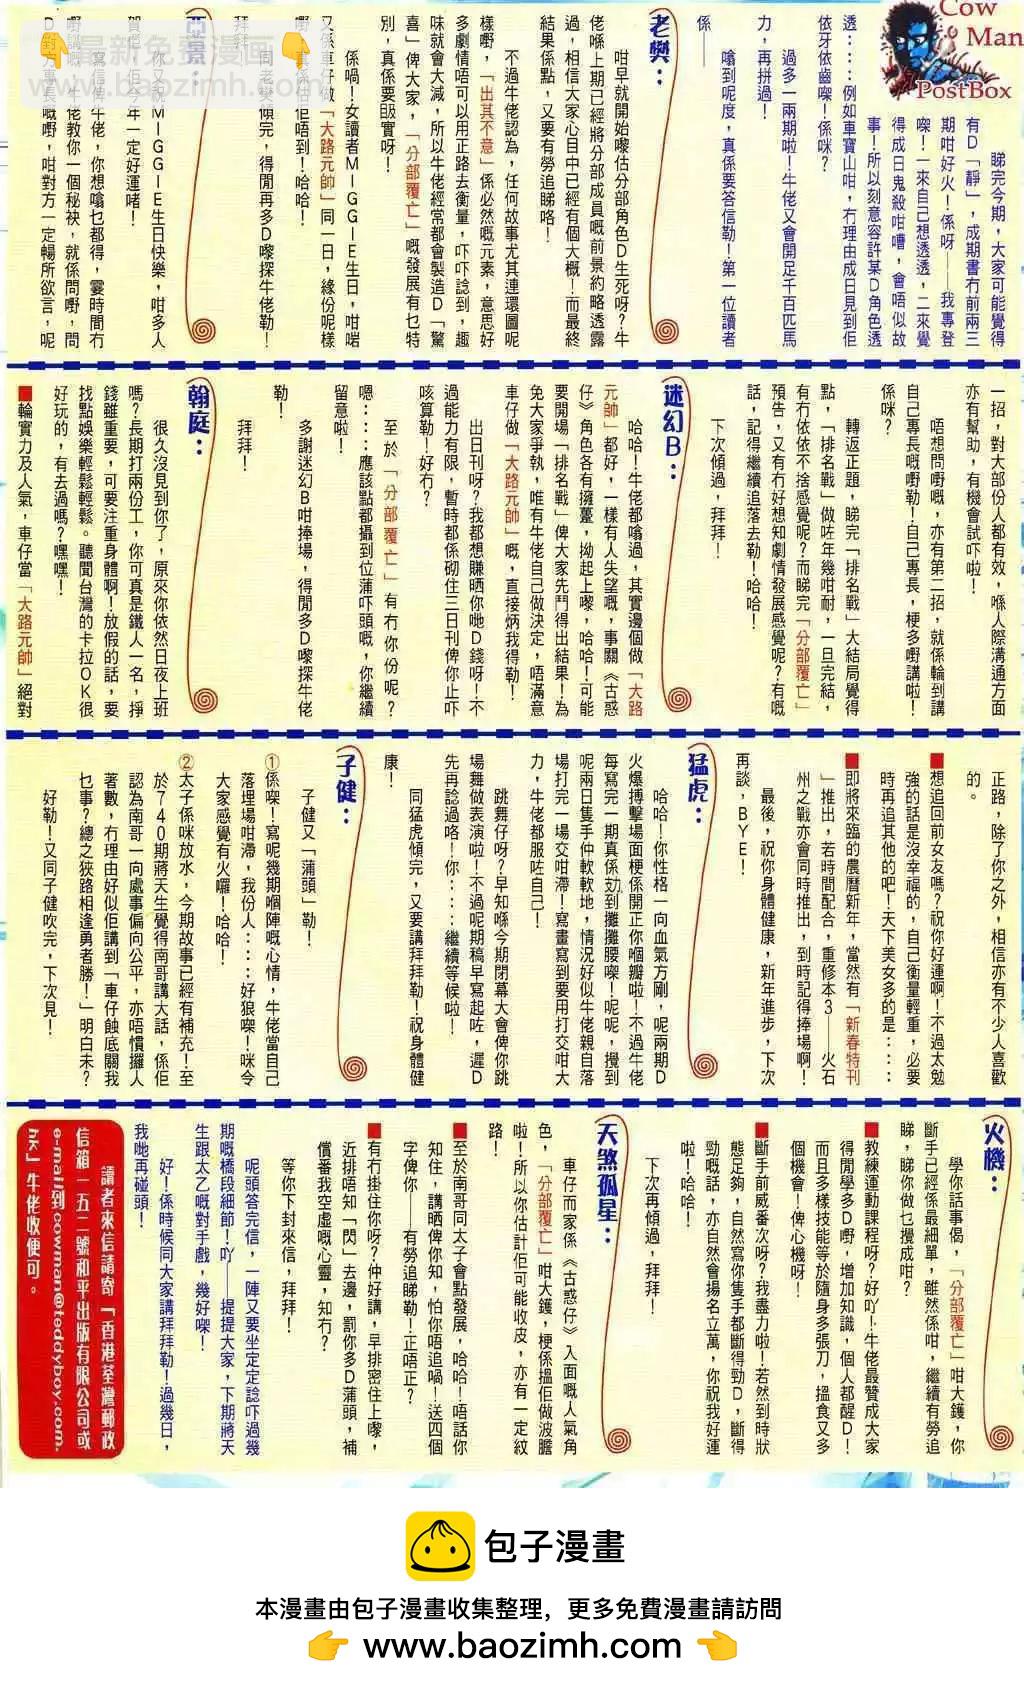 Cow
Man
PostBox
睇完今期，大家可能覺得
有D「靜」，成期書冇前兩三
期咁好火！係呀——我專登
㗎！一來自己想透透，二來覺
得成日鬼殺咁嘈，會唔似故
事！所以刻意容許某D角色透
透：：：例如車寶山咁，冇理由成日見到佢
依牙依齒㗎！係咪？
過多一兩期啦！牛佬又會開足千百匹馬
力，再拼過！
噏到呢度，真係要答信勒！第一位讀者
係——
老樊：
咁早就開始嚟估分部角色D生死呀？牛
佬喺上期已經將分部成員嘅前景約略透露
過，相信大家心目中已經有個大概！而最終
結果係點，又要有勞追睇咯！
不過牛佬認為，任何故事尤其連環圖呢
樣嘢，「出其不意」係必然嘅元素，意思好
多劇情唔可以用正路去衡量，吓吓諗到，趣
味就會大減，所以牛佬經常都會製造D「驚
喜」俾大家，「分部覆亡」嘅發展有乜特
別，真係要䁪實呀！
係喎！女讀者MIGGIE生日，咁啱
又係車仔做「大路元帥」同一日，緣份呢樣
嘢，真係估佢唔到！哈哈！
同老樊傾完，得閒再多D嚟探牛佬勒！
拜拜！
你又祝MIGGIE生日快樂，咁多人
賀佢，佢今年一定好運啫！
寫信俾牛佬，你想噏乜都得，霎時間冇
嘢講嘅，牛佬教你一個秘袂，就係問嘢，問
D對方專長嘅嘢，咁對方一定暢所欲言，呢
一招，對大部份人都有效，喺人際溝通方面
亦有幫助，有機會試吓啦！
唔想問嘢嘅，亦有第二招，就係輪到講
自己專長嘅嘢勒！自己專長，梗多嘢講啦！
係咪？
轉返正題，睇完「排名戰」大結局覺得
點，「排名戰」做咗年幾咁耐，一旦完結，
有冇依依不捨感覺呢？而睇完「分部覆亡」
預告，又有冇好想知劇情發展感覺呢？有嘅
話，記得繼續追落去勒！哈哈！
下次傾過，拜拜！
迷幻B：
哈哈！牛佬都噏過，其實邊個做「大路
元帥」都好，一樣有人失望嘅，事關《古惑
仔》角色各有擁躉，拗起上嚟，哈哈！可能
要開場「排名戰」俾大家先鬥得出結果！為
免大家爭執，唯有牛佬自己做決定，唔滿意
車仔做「大路元帥」嘅，直接炳我得勒！
出日刊呀？我都想賺晒你哋D錢呀！不
過能力有限，暫時都係砌住三日刊俾你止吓
咳算勒！好冇？
至於「分部覆亡」有冇你份呢？
嗯：：：應該點都攝到位蒲吓頭嘅，你繼續
留意啦！
多謝迷幻B咁捧場，得閒多D嚟探牛佬
勒！
拜拜！
翰庭：
很久沒見到你了，原來你依然日夜上班
嗎？長期打兩份工，你可真是鐵人一名，掙
錢雖重要，可要注重身體啊！放假的話，要
找點娛樂輕鬆輕鬆。聽聞台灣的卡拉OK很
好玩的，有去過嗎？嘿嘿！
■論實力及人氣，車仔當「大路元帥」絕對
正路，除了你之外，相信亦有不少人喜歡
的。
■想追回前女友嗎？祝你好運啊！不過太勉
強的話是沒幸福的，自己衡量輕重，必要
時再追其他的吧！天下美女多的是：：：
■即將來臨的農曆新年，當然有「新春特刊
」推出，若時間配合，重修本3——火石
州之戰亦會同時推出，到時記得捧場啊！
最後，祝你身體健康，新年進步，下次
再談，BYE！
猛虎：
哈哈！你性格一向血氣方剛，呢兩期D
火爆搏擊場面梗係開正你嗰瓣啦！不過牛佬
每寫完一期真係攰到攤攤腰㗎！呢呢，攪到
呢兩日隻手仲軟軟地，情況好似牛佬親自落
場打完一場交咁滯！寫畫寫到要用打交咁大
力，牛佬都服咗自己！
跳舞仔呀？早知喺今期閉幕大會俾你跳
場舞做表演啦！不過呢期稿早寫起咗，遲D
先再諗過咯！你：：：繼續等候啦！
同猛虎傾完，又要講拜拜勒！祝身體健
康！
子健：
子健又「蒲頭」勒！
①係㗎！寫呢幾期嗰陣嘅心情，牛佬當自己
落埋場咁滯，我份人：：：好狼㗎！咪令
大家感覺有火囉！哈哈！
②太子係咪放水，今期故事已經有補充！至
於740期蔣天生覺得南哥講大話，係佢
認為南哥一向處事偏向公平，亦唔慣攞人
著數，冇理由好似佢講到「車仔蝕底關我
乜事？總之狹路相逢勇者勝！」明白未？
好勒！又同子健吹完，下次見！
火機：
學你話事偈，「分部覆亡」咁大鑊，你
斷手已經係最細單，雖然係咁，繼續有勞追
睇，睇你做乜攪成咁？
■教練運動課程呀？好吖！牛佬最贊成大家
得閒學多D嘢，增加知識，個人都醒D！
而且多樣技能等於隨身多張刀，搵食又多
個機會！俾心機呀！
■斷手前威番次呀？我盡力啦！若然到時狀
態足夠，自然寫你隻手都斷得勁D，斷得
勁嘅話，亦自然會揚名立萬，你祝我好運
啦！哈哈！
下次再傾過，拜拜！
天煞孤星：
車仔而家係《古惑仔》入面嘅人氣角
色，「分部覆亡」咁大鑊，梗係搵佢做波膽
啦！所以你估計佢可能收皮，亦有一定紋
路！
■至於南哥同太子會點發展，哈哈！唔話你
知住，講晒俾你知，怕你唔追喎！送四個
字俾你——有勞追睇勒！正唔正？
■有冇掛住你呀？仲好講，早排密住上嚟，
近排唔知「閃」去邊，罰你多D蒲頭，補
償番我空虛嘅心靈，知冇？
等你下封來信，拜拜！
呢頭答完信，一陣又要坐定定諗吓過幾
期嘅橋段細節！吖——提提大家，下期蔣天
生跟太乙嘅對手戲，幾好㗎！
好！係時候同大家講拜拜勒！過幾日，
我哋再碰頭！
讀者來信請寄「香港荃灣郵政
信箱一五二號和平出版有限公司或
e-mail到cowman@teddyboy.com.
hk」牛佬收便可。
👇最新免费漫画👇
www.baozimh.com
包子漫畫
本漫畫由包子漫畫收集整理，更多免費漫畫請訪問
👉 www.baozimh.com 👈